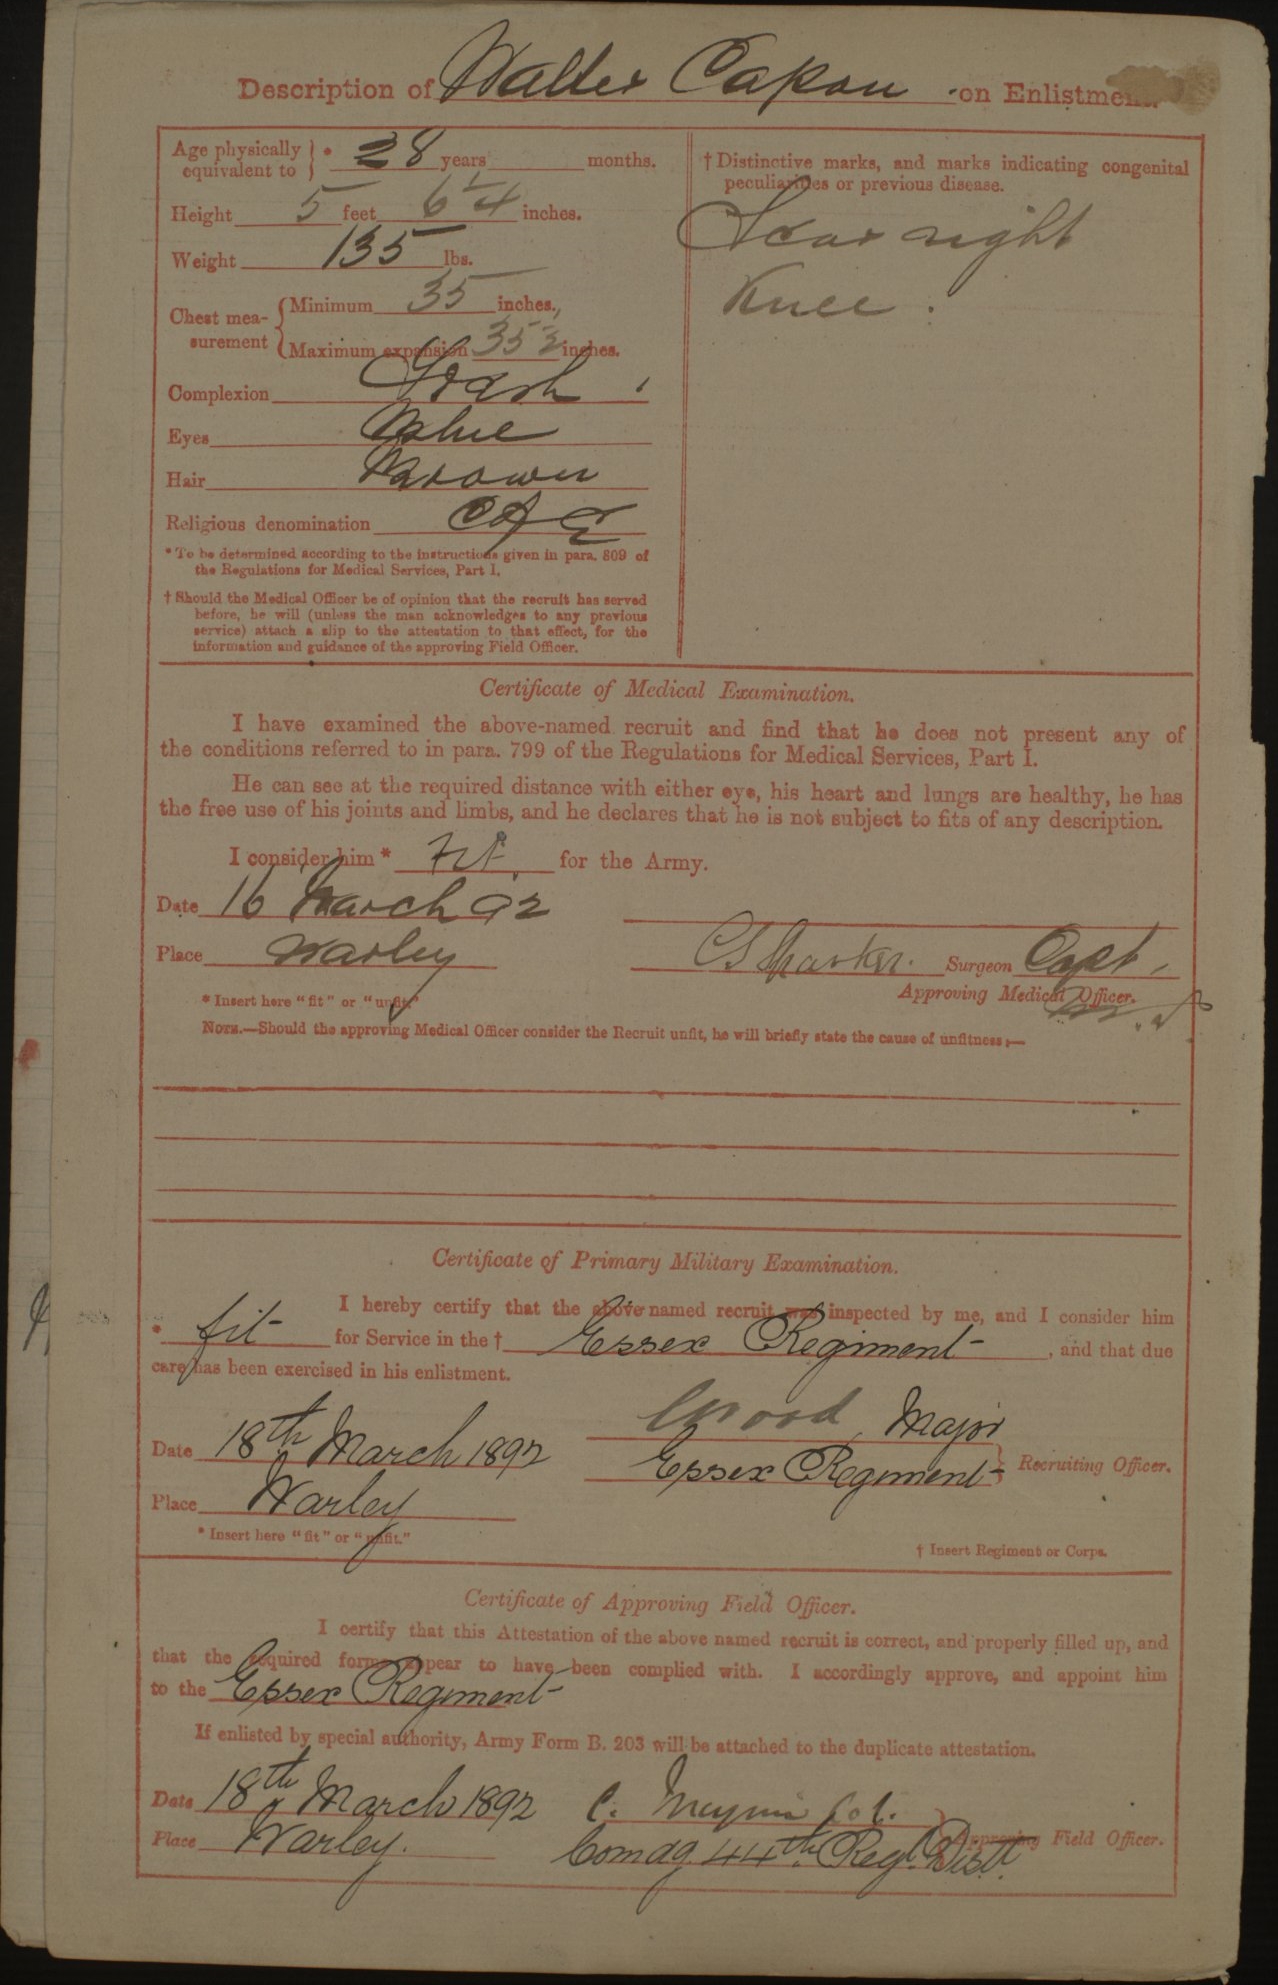 Description of Walter Capon on Enlistment.
Age physically equivalent to } * 28 years months.
Height 5 feet 6 1/4 inches.
Weight 135 lbs.
Chest measurement { Minimum 35 inches.
Maximum expansion 35 1/2 inches.
Complexion Fresh
Eyes Blue
Hair Brown
Religious denomination C of E
* To be determined according to the instructions given in para. 809 of
the Regulations for Medical Services, Part I.
† Should the Medical Officer be of opinion that the recruit has served
before, he will (unless the man acknowledges to any previous
service) attach a slip to the attestation to that effect, for the
information and guidance of the approving Field Officer.
† Distinctive marks, and marks indicating congenital
peculiarities or previous disease.
Scar right
Knee.
Certificate of Medical Examination.
I have examined the above-named recruit and find that he does not present any of
the conditions referred to in para. 799 of the Regulations for Medical Services, Part I.
He can see at the required distance with either eye, his heart and lungs are healthy, he has
the free use of his joints and limbs, and he declares that he is not subject to fits of any description.
I consider him * Fit for the Army.
Date 16 March 92
Place Warley
Surgeon Capt.
Approving Medical Officer.
* Insert here "fit" or "unfit."
NOTE.—Should the approving Medical Officer consider the Recruit unfit, he will briefly state the cause of unfitness:—
Certificate of Primary Military Examination.
I hereby certify that the above named recruit was inspected by me, and I consider him
* fit for Service in the † Essex Regiment, and that due
care has been exercised in his enlistment.
Wood, Major
Date 18th March 1892
Essex Regiment } Recruiting Officer.
Place Warley
* Insert here "fit" or "unfit."
† Insert Regiment or Corps.
Certificate of Approving Field Officer.
I certify that this Attestation of the above named recruit is correct, and properly filled up, and
that the required forms appear to have been complied with. I accordingly approve, and appoint him
to the Essex Regiment
If enlisted by special authority, Army Form B. 203 will be attached to the duplicate attestation.
Date 18th March 1892 C. Col.
Place Warley. Comdg. 44th Regl. Distt. } Approving Field Officer.